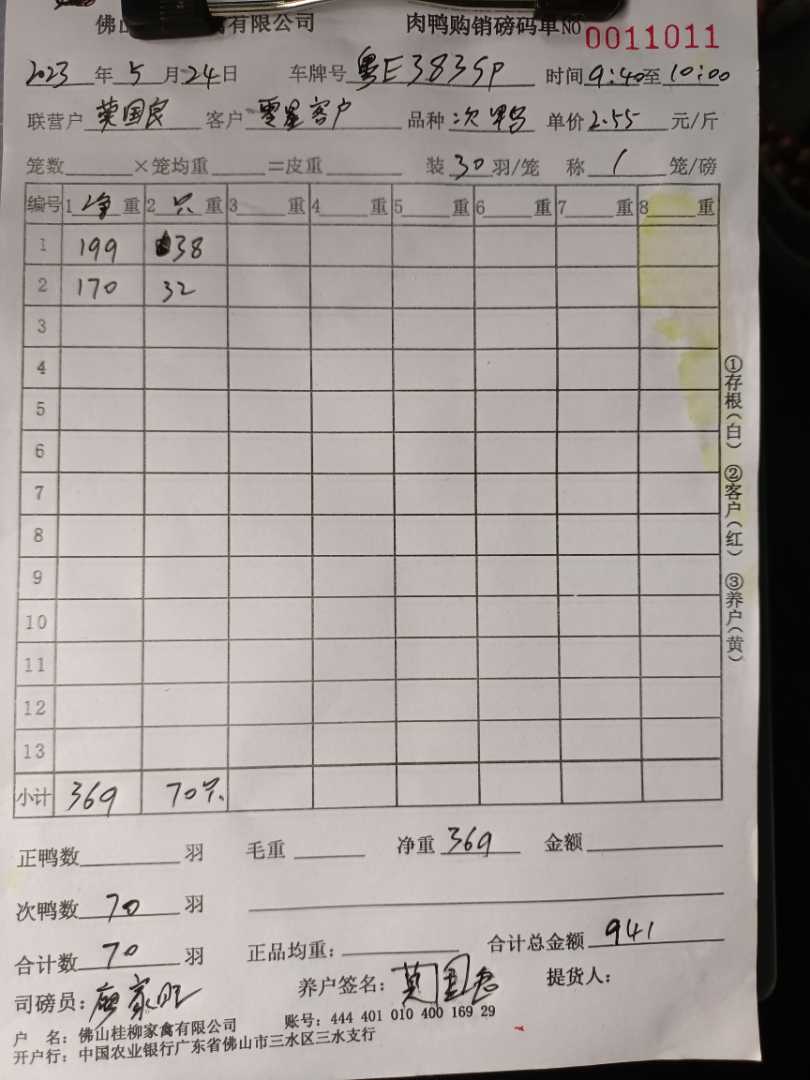 佛山 禽有限公司 肉鸭购销磅码单 No 0011011
2023 年 5 月 24 日 车牌号 粤E383SP 时间 9:40 至 10:00
联营户 莫国良 客户 零星客户 品种 次鸭 单价 2.55 元/斤
笼数 ×笼均重 =皮重 装 30 羽/笼 称 1 笼/磅
编号 1 净 重 2 只 重 3 重 4 重 5 重 6 重 7 重 8 重
1 199 38
2 170 32
3
4
5
6
7
8
9
10
11
12
13
小计 369 70只
①存根(白) ②客户(红) ③养户(黄)
正鸭数 羽 毛重 净重 369 金额
次鸭数 70 羽
合计数 70 羽 正品均重: 合计总金额 941
司磅员: 家旺 养户签名: 莫国良 提货人:
户 名: 佛山桂柳家禽有限公司 账号: 444 401 010 400 169 29
开户行: 中国农业银行广东省佛山市三水区三水支行